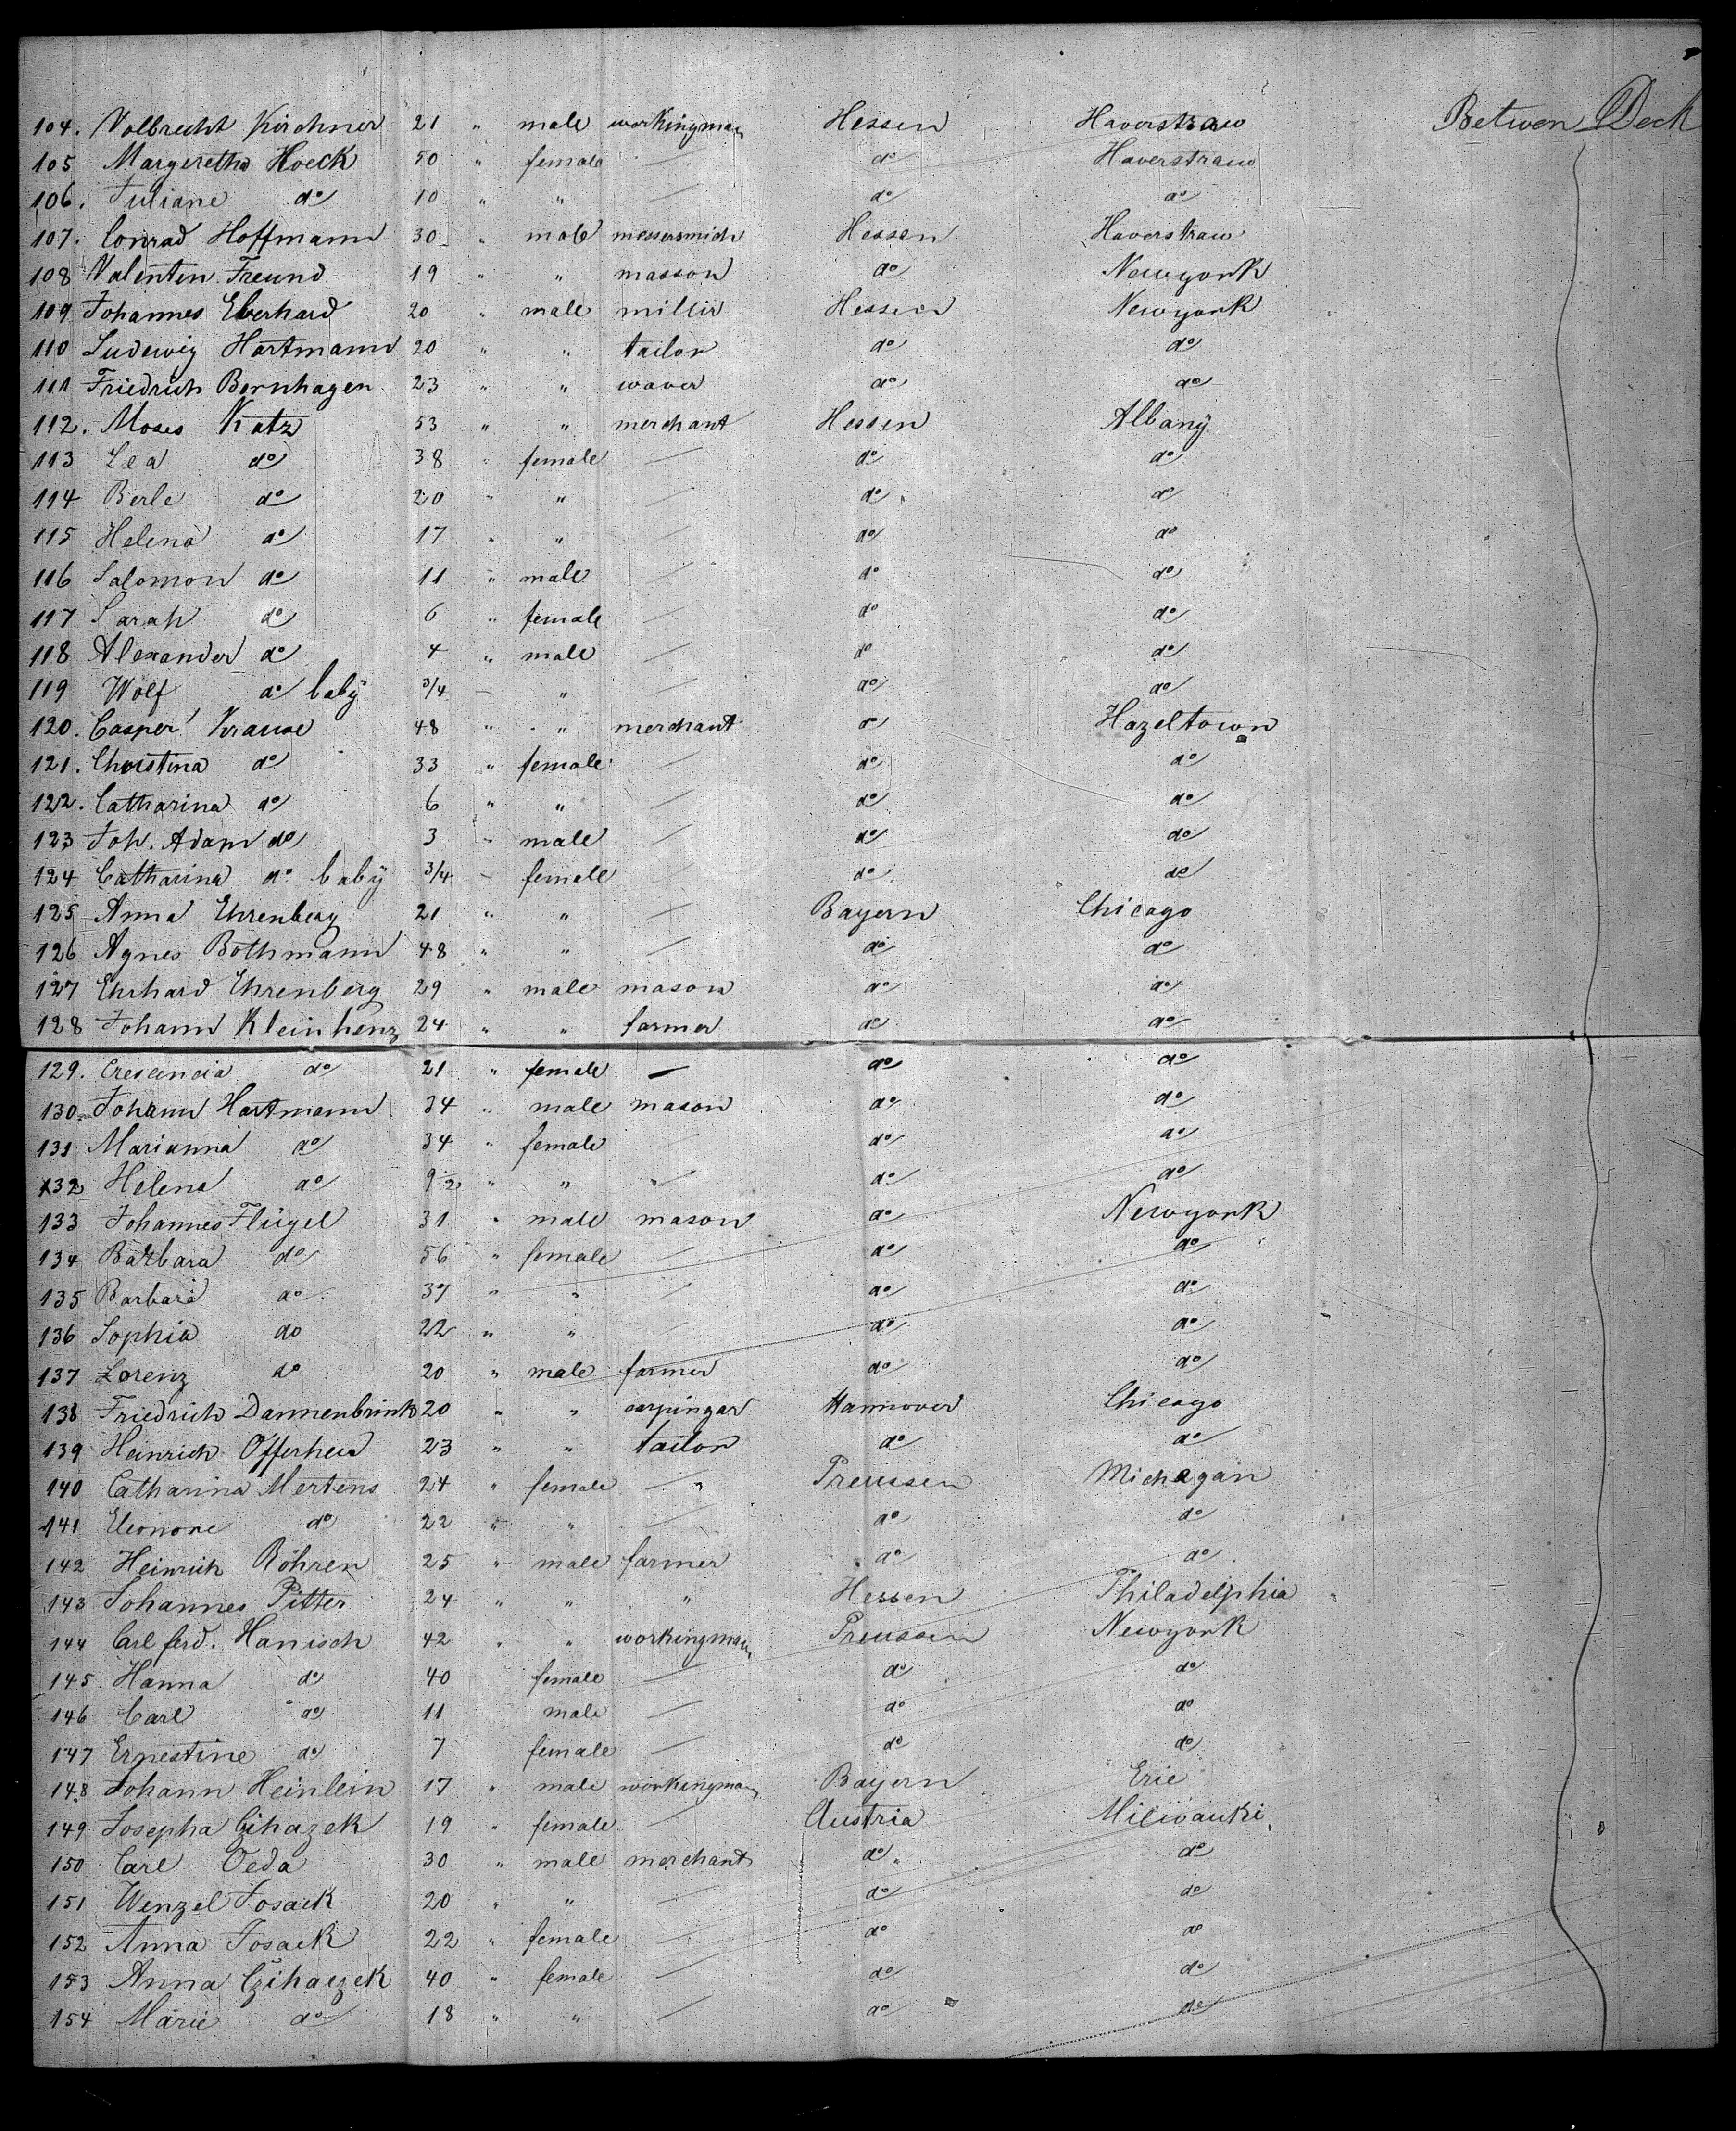 104. Volbrecht Kirchner 21 " male workingman Hessen Haverstraw Betwen Deck
105 Margeretha Hoeck 50 " female — do Haverstraw
106. Juliane do 10 " " — do do
107. Conrad Hoffmann 30 " male messersmich Hessen Haverstraw
108 Valentin Freund 19 " " masson do Newyork
109 Johannes Eberhard 20 " male millir Hessen Newyork
110 Ludewig Hartmann 20 " " tailor do do
111 Friedrich Bernhagen 23 " " waver do do
112. Moses Katz 53 " " merchant Hessen Albany
113 Lea do 38 " female — do do
114 Berle do 20 " " — do do
115 Helena do 17 " " — do do
116 Salomon do 11 " male — do do
117 Sarah do 6 " female — do do
118 Alexander do 4 " male — do do
119 Wolf do baby 3/4 – " — do do
120. Casper Krause 48 " " merchant do Hazeltown
121. Christina do 33 " female — do do
122. Catharina do 6 " " — do do
123 Joh. Adam do 3 " male — do do
124 Catharina do baby 3/4 – female — do do
125 Anna Ehrenberg 21 " " — Bayern Chicago
126 Agnes Bothmann 48 " " — do do
127 Ehrhard Ehrenberg 29 " male mason do do
128 Johann Kleinhenz 24 " " farmer do do
129. Crescencia do 21 " female — do do
130. Johann Hartmann 34 " male mason do do
131 Marianna do 34 " female — do do
132 Helena do 9 1/2 " " " do do
133 Johannes Flügel 31 " male mason do Newyork
134 Barbara do 56 " female — do do
135 Barbara do 37 " " — do do
136 Sophia do 22 " " — do do
137 Lorenz do 20 " male farmer do do
138 Friedrich Dannenbrink 20 " " carpingar Hannover Chicago
139 Heinrich Offerheid 23 " " tailor do do
140 Catharina Mertens 24 " female — " Preussen Michegan
141 Eleonore do 22 " " — do do
142 Heinrich Röhren 25 " male farmer do do
143 Johannes Pitter 24 " " " Hessen Philadelphia
144 Carl ferd. Hanisch 42 " " workingman Preussen Newyork
145. Hanna do 40 female — do do
146 Carl do 11 male — do do
147 Ernestine do 7 female — do do
148 Johann Heinlein 17 " male workingman Bayern Erie
149 Josepha Czihazek 19 " female — Austria Milivauki
150 Carl Oeda 30 " male merchant do do
151 Wenzel Josack 20 " " — do do
152 Anna Josack 22 " female — do do
153 Anna Czihaczek 40 " female — do do
154 Marie do 18 " " — do do